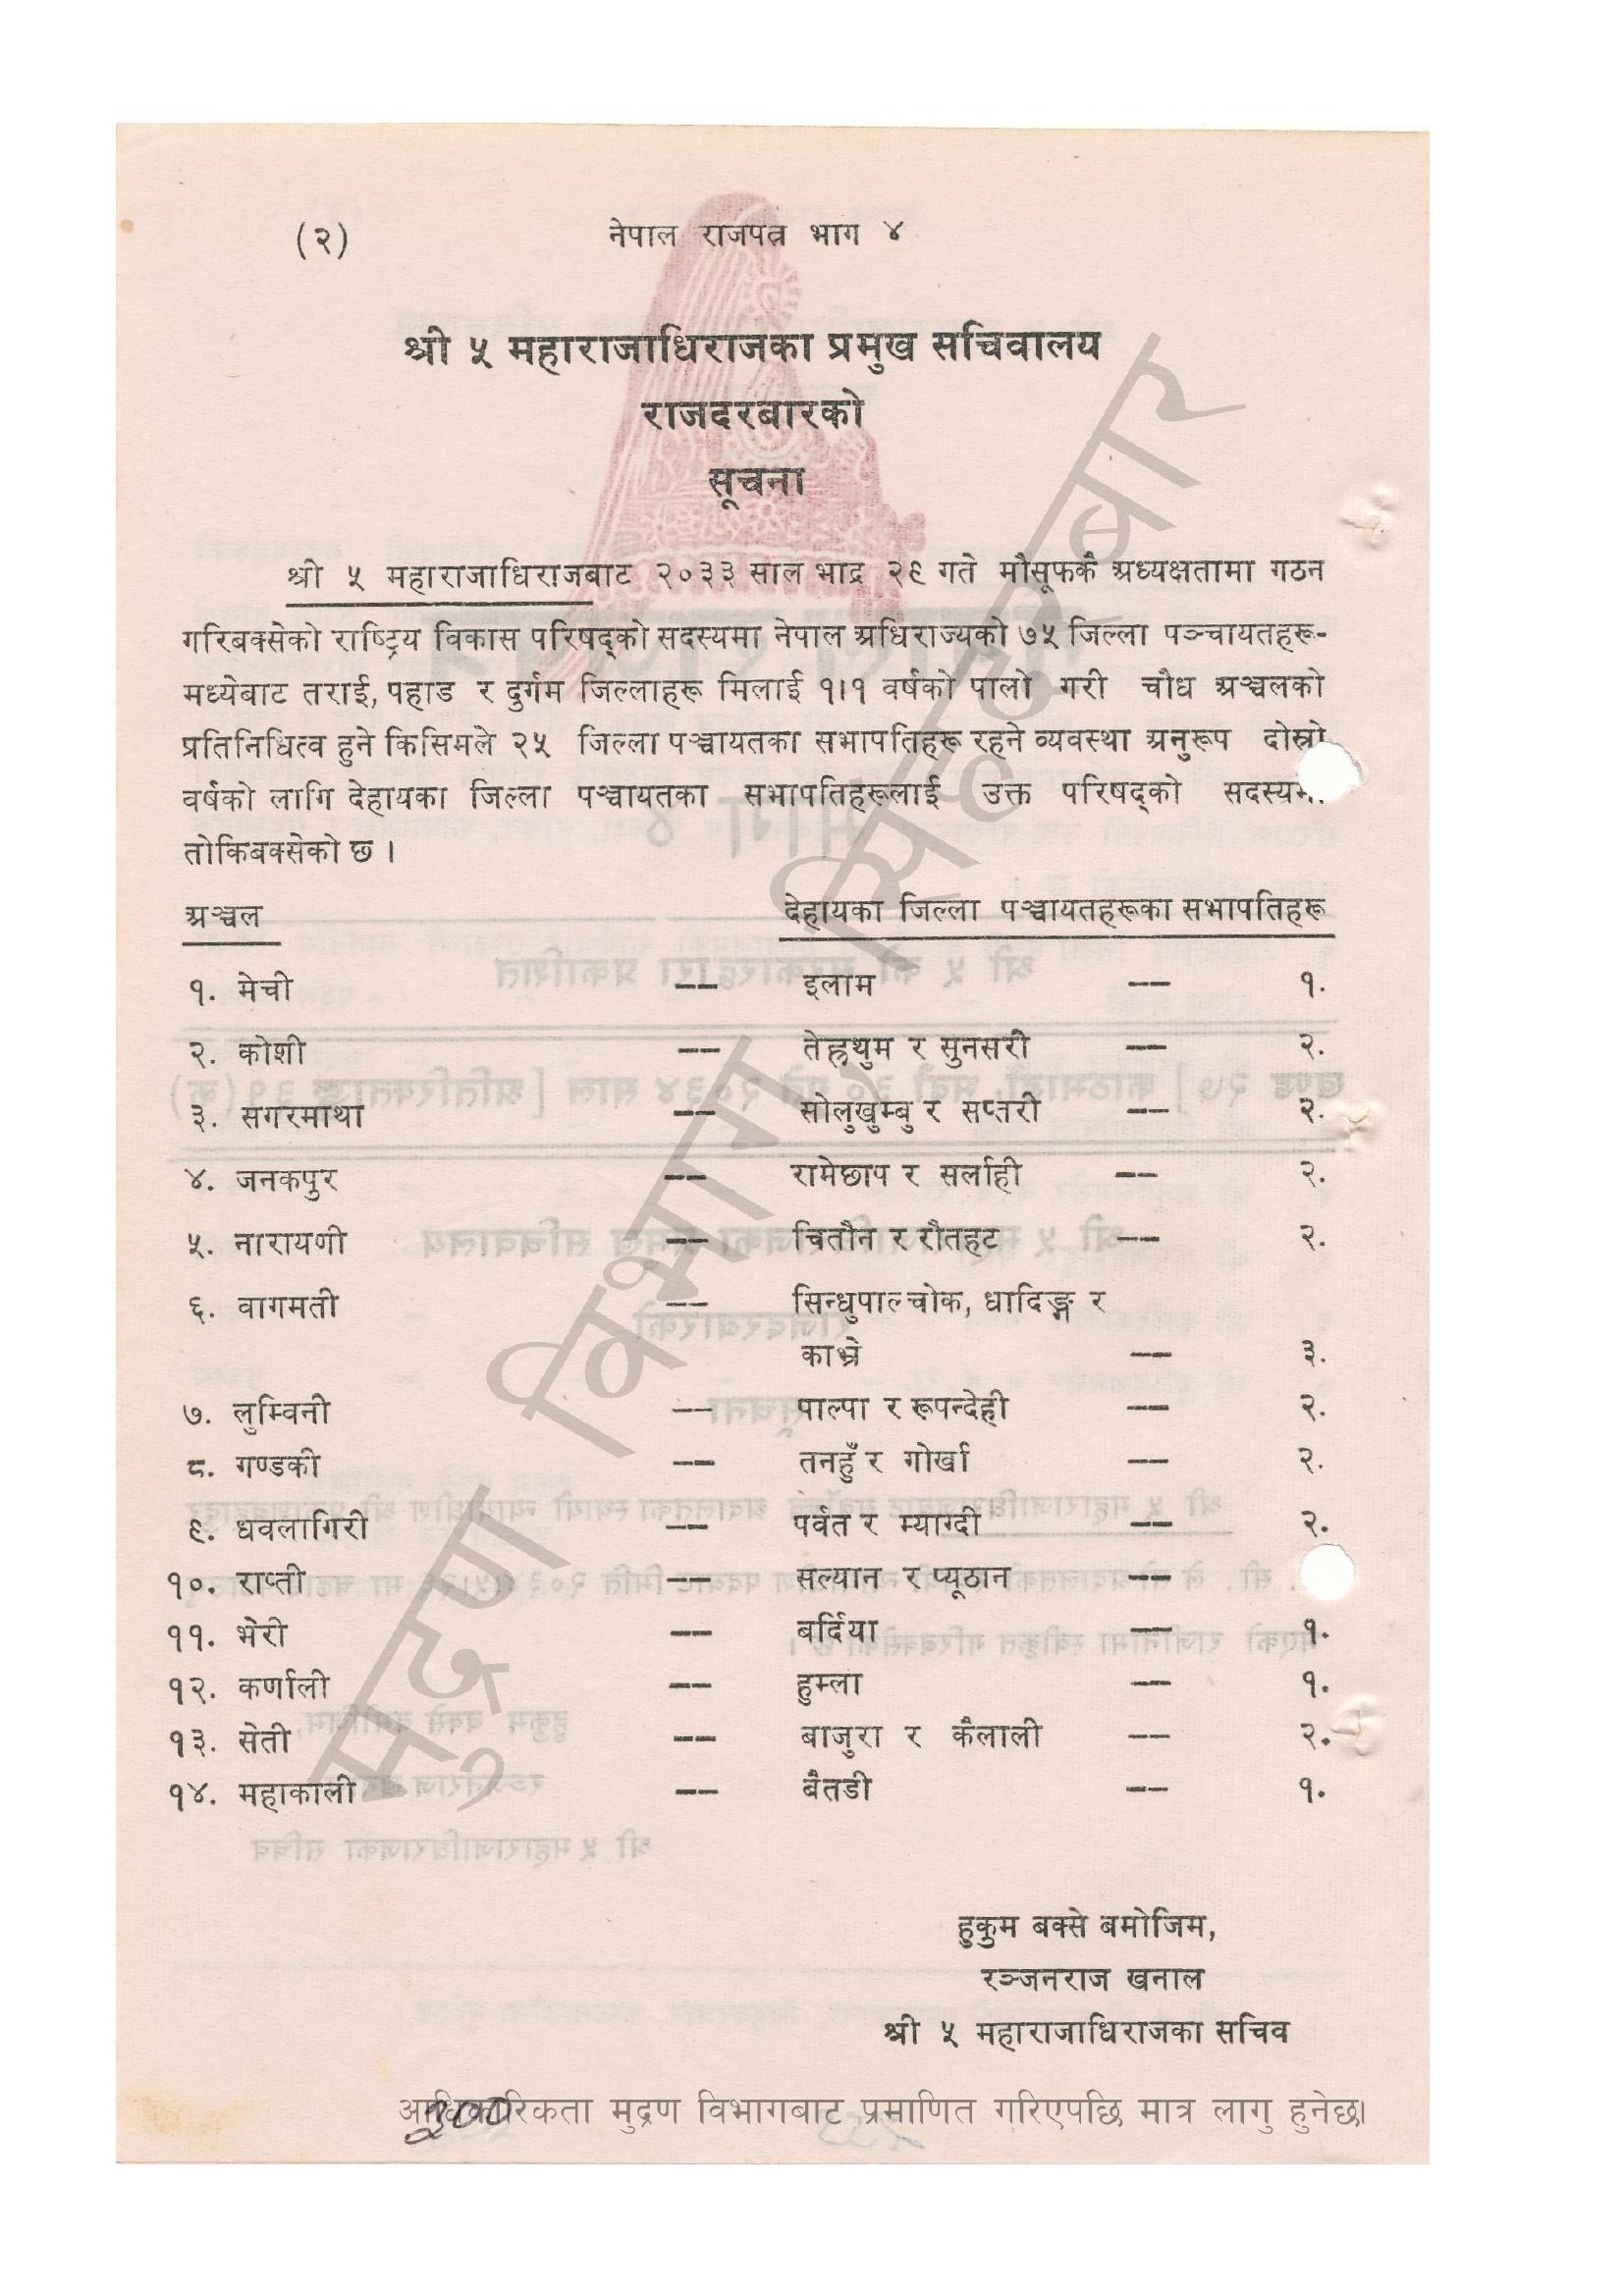 (२) नेपाल राजपत्र भाग ४
श्री ५ महाराजाधिराजका प्रमुख सचिवालय
राजदरबारको
सूचना
श्री ५ महाराजाधिराजबाट २०३३ साल भाद्र २९ गते मौसूफकै अध्यक्षतामा गठन
गरिबक्सेको राष्ट्रिय विकास परिषद्को सदस्यमा नेपाल अधिराज्यको ७५ जिल्ला पञ्चायतहरू-
मध्येबाट तराई, पहाड र दुर्गम जिल्लाहरू मिलाई १।१ वर्षको पालो गरी चौध अञ्चलको
प्रतिनिधित्व हुने किसिमले २५ जिल्ला पञ्चायतका सभापतिहरू रहने व्यवस्था अनुरूप दोस्रो
वर्षको लागि देहायका जिल्ला पञ्चायतका सभापतिहरूलाई उक्त परिषद्को सदस्यमा
तोकिबक्सेको छ ।
अञ्चल देहायका जिल्ला पञ्चायतहरूका सभापतिहरू
१. मेची -- इलाम -- १.
२. कोशी -- तेह्रथुम र सुनसरी -- २.
३. सगरमाथा -- सोलुखुम्बु र सप्तरी -- २.
४. जनकपुर -- रामेछाप र सर्लाही -- २.
५. नारायणी -- चितौन र रौतहट -- २.
६. वागमती -- सिन्धुपाल्चोक, धादिङ्ग र
काभ्रे -- ३.
७. लुम्विनी -- पाल्पा र रूपन्देही -- २.
८. गण्डकी -- तनहुँ र गोर्खा -- २.
९. धवलागिरी -- पर्वत र म्याग्दी -- २.
१०. राप्ती -- सल्यान र प्यूठान --
११. भेरी -- बर्दिया -- १.
१२. कर्णाली -- हुम्ला -- १.
१३. सेती -- बाजुरा र कैलाली -- २.
१४. महाकाली -- बैतडी -- १.
हुकुम बक्से बमोजिम,
रञ्जनराज खनाल
श्री ५ महाराजाधिराजका सचिव
आधिकारिकता मुद्रण विभागबाट प्रमाणित गरिएपछि मात्र लागु हुनेछ।
मुद्रण विभाग, सिंहदरबार